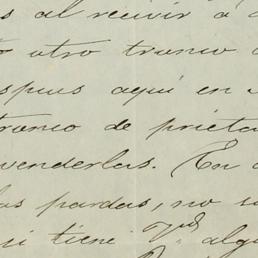 s al recivir a
otro trunco
spues aqui en
trunco de prieta
venderlas. En
as pardas, no s
si tiene Vd. alg